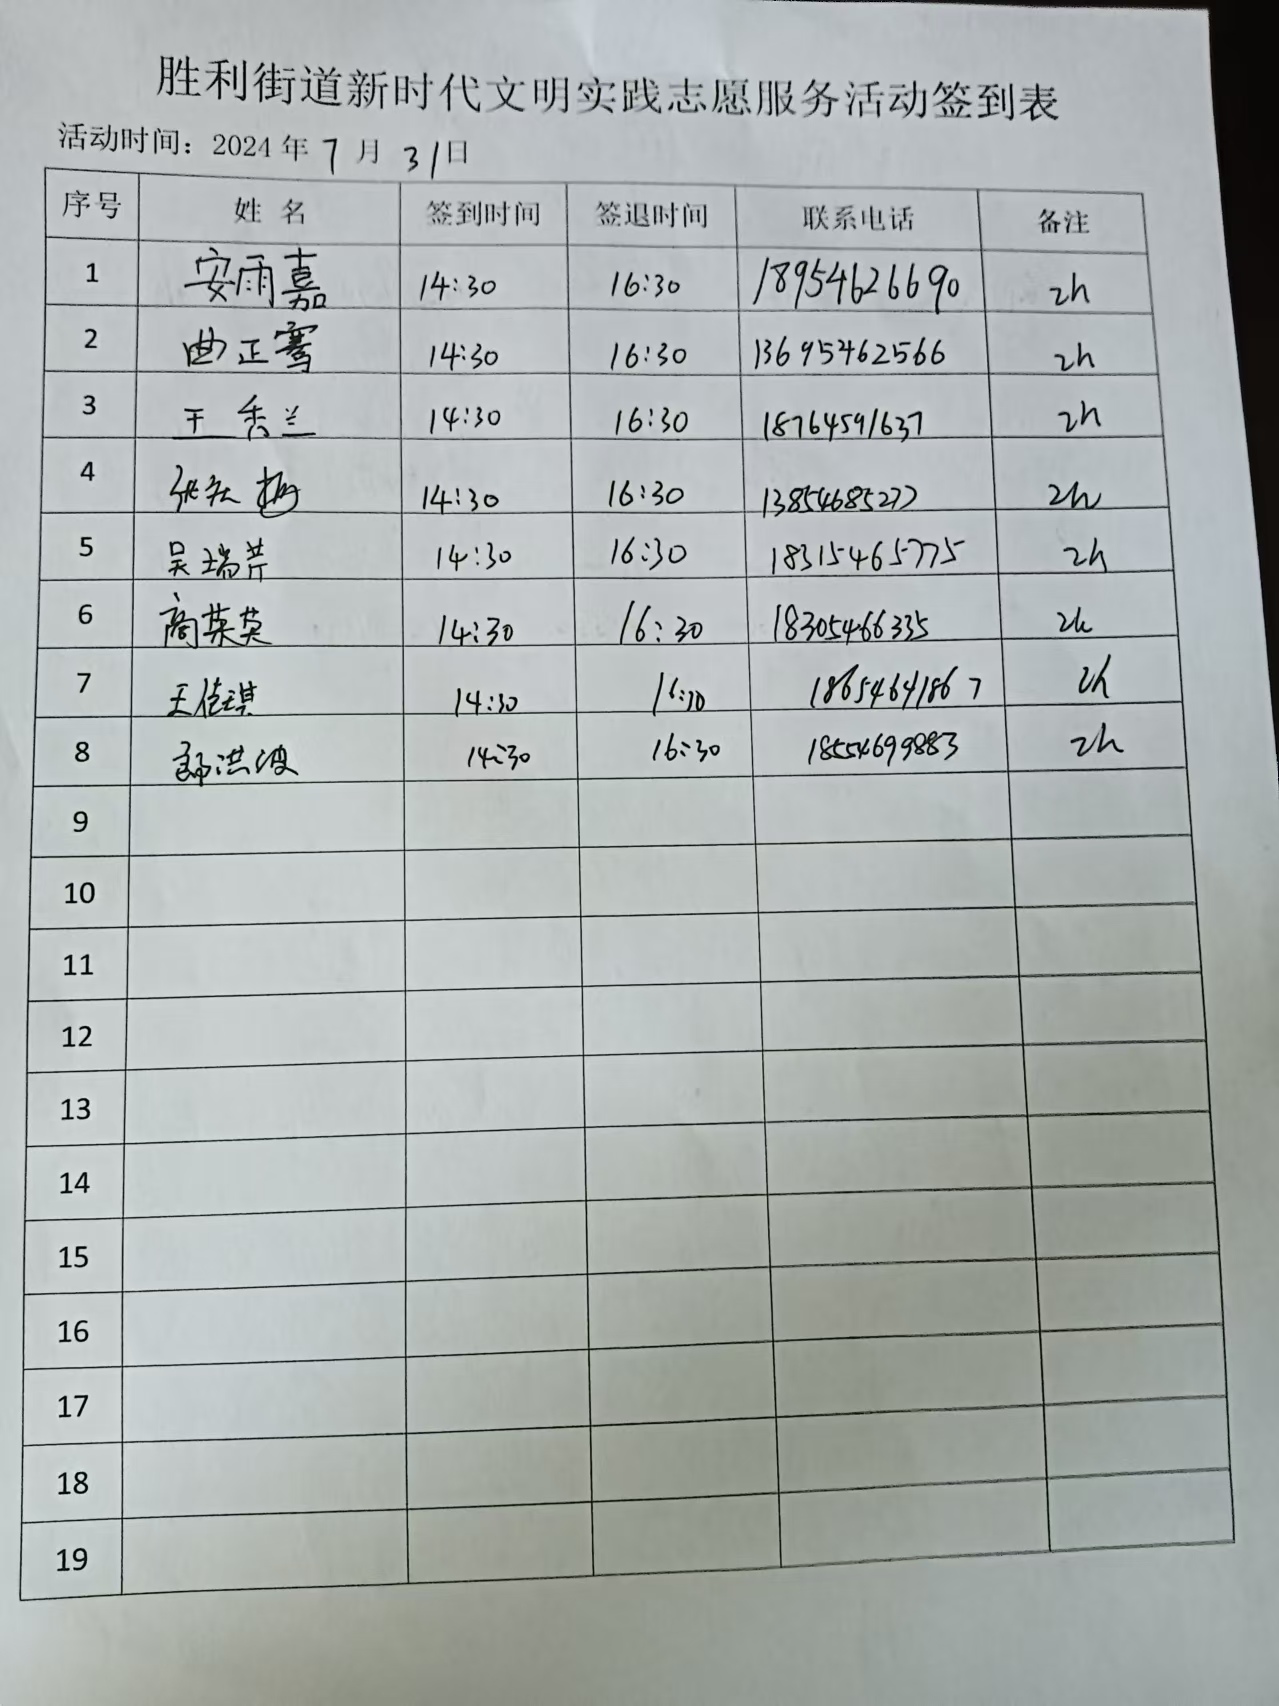 胜利街道新时代文明实践志愿服务活动签到表
活动时间：2024年7月31日
序号 姓 名 签到时间 签退时间 联系电话 备注
1 安雨嘉 14:30 16:30 18954626690 2h
2 曲正骞 14:30 16:30 13695462566 2h
3 王秀兰 14:30 16:30 18764591637 2h
4 14:30 16:30 13854685277 2h
5 吴瑞芹 14:30 16:30 18315465775 2h
6 商荣英 14:30 16:30 18305466335 2h
7 王佳琪 14:30 16:30 18654641867 2h
8 洪波 14:30 16:30 18554699883 2h
9
10
11
12
13
14
15
16
17
18
19